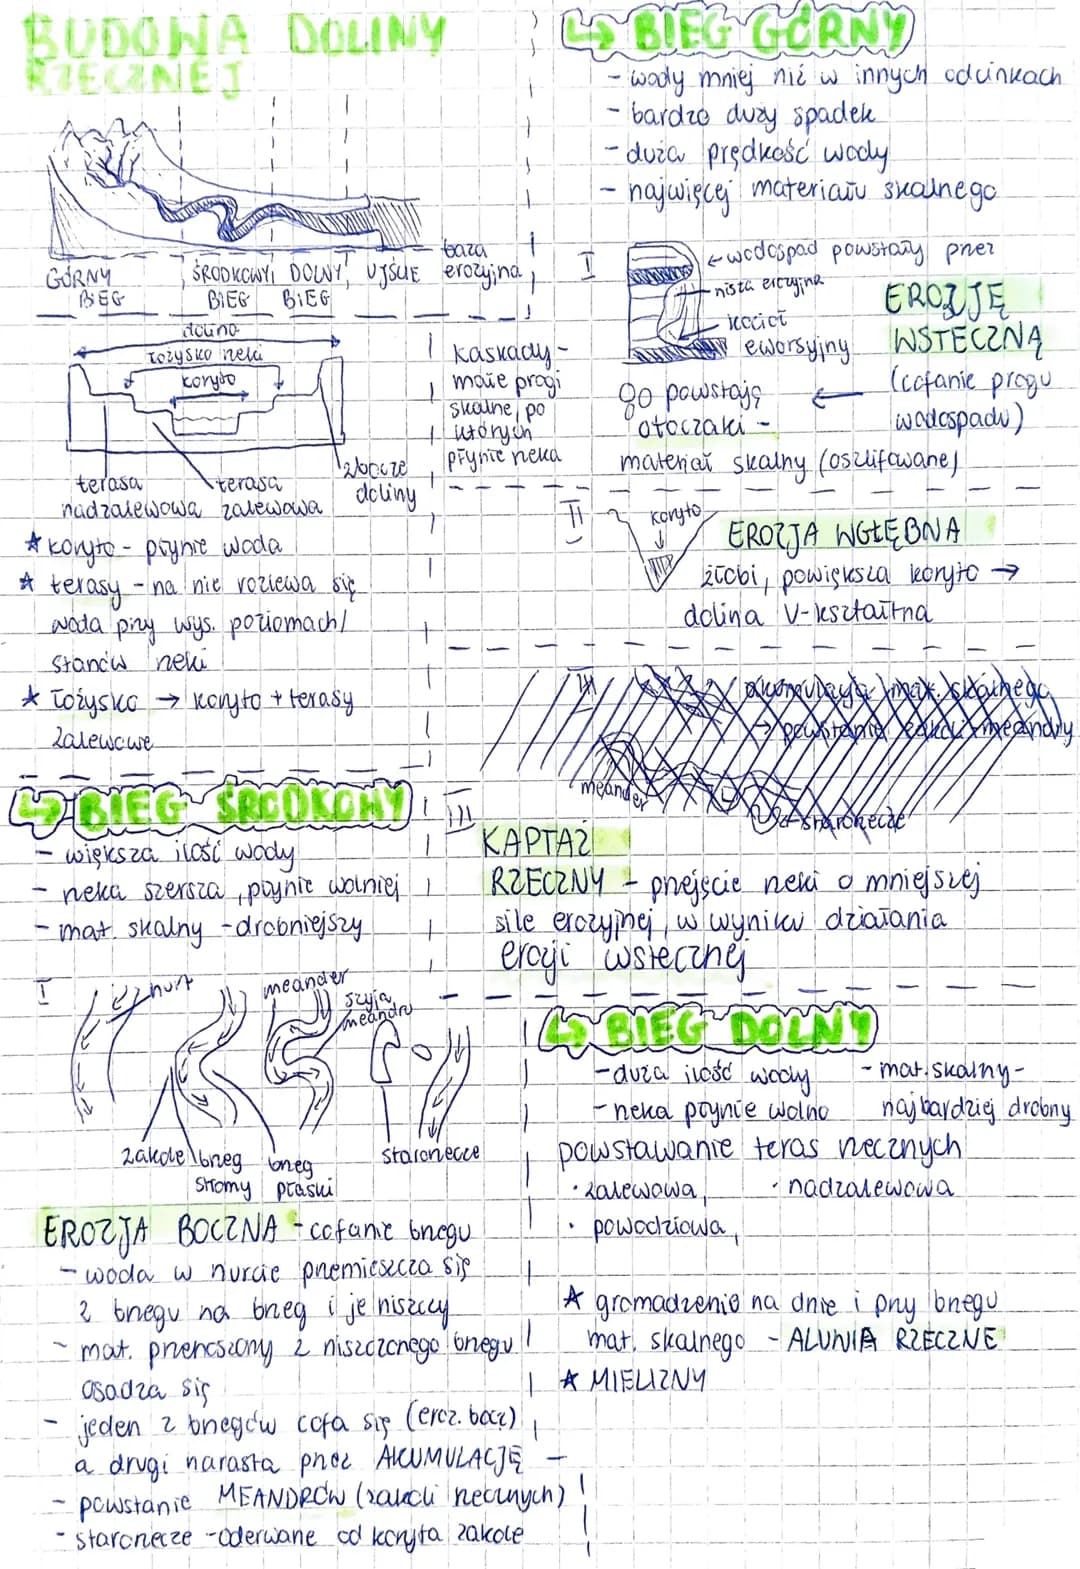 BUDOWA DOLINY
RZECZNEJ
GÓRNY
BIEG
ŚRODKOWY
BIEG
DOLNY
BIEG
UJŚCIE
baza
erozyjna
dolina
łożysko rzeki
koryto
terasa
nadzalewowa
terasa
zalewowa
zbocze
doliny
kaskady -
małe progi
skalne, po
których
płynie rzeka
★ koryto - płynie woda
★ terasy - na nie rozlewa się
woda przy wys. poziomach/
stanów rzeki
★ łożysko → koryto + terasy
zalewowe
↳ BIEG ŚRODKOWY
- większa ilość wody
- rzeka szersza, płynie wolniej
- mat. skalny - drobniejszy
I
nurt
meander
szyja
meandru
zakole
brzeg
stromy
brzeg
płaski
starorzecze
EROZJA BOCZNA - cofanie brzegu
- woda w nurcie przemieszcza się
z brzegu na brzeg i je niszczy
- mat. przenoszony z niszczonego brzegu
osadza się
- jeden z brzegów cofa się (eroz. bocz)
a drugi narasta przez AKUMULACJĘ -
- powstanie MEANDRÓW (zakoli rzecznych)
- starorzecze - oderwane od koryta zakole
↳ BIEG GÓRNY
- wody mniej niż w innych odcinkach
- bardzo duży spadek
- duża prędkość wody
- najwięcej materiału skalnego
I
← wodospad powstały przez
nisza erozyjna
kocioł
eworsyjny
EROZJĘ
WSTECZNĄ
(cofanie progu
wodospadu)
←
go powstają
otoczaki -
materiał skalny (oszlifowane)
II
koryto
EROZJA WGŁĘBNA
żłobi, powiększa koryto →
dolina V-kształtna
III
akumulacja mat. skalnego
→ powstanie zakoli meandry
meander
starorzecze
III
KAPTAŻ
RZECZNY - przejęcie rzeki o mniejszej
sile erozyjnej, w wyniku działania
erozji wstecznej
↳ BIEG DOLNY
- duża ilość wody
- rzeka płynie wolno
- mat. skalny -
najbardziej drobny
powstawanie teras rzecznych
· zalewowa,
· nadzalewowa
· powodziowa,
★ gromadzenie na dnie i przy brzegu
mat. skalnego - ALUWIA RZECZNE
★ MIELIZNY